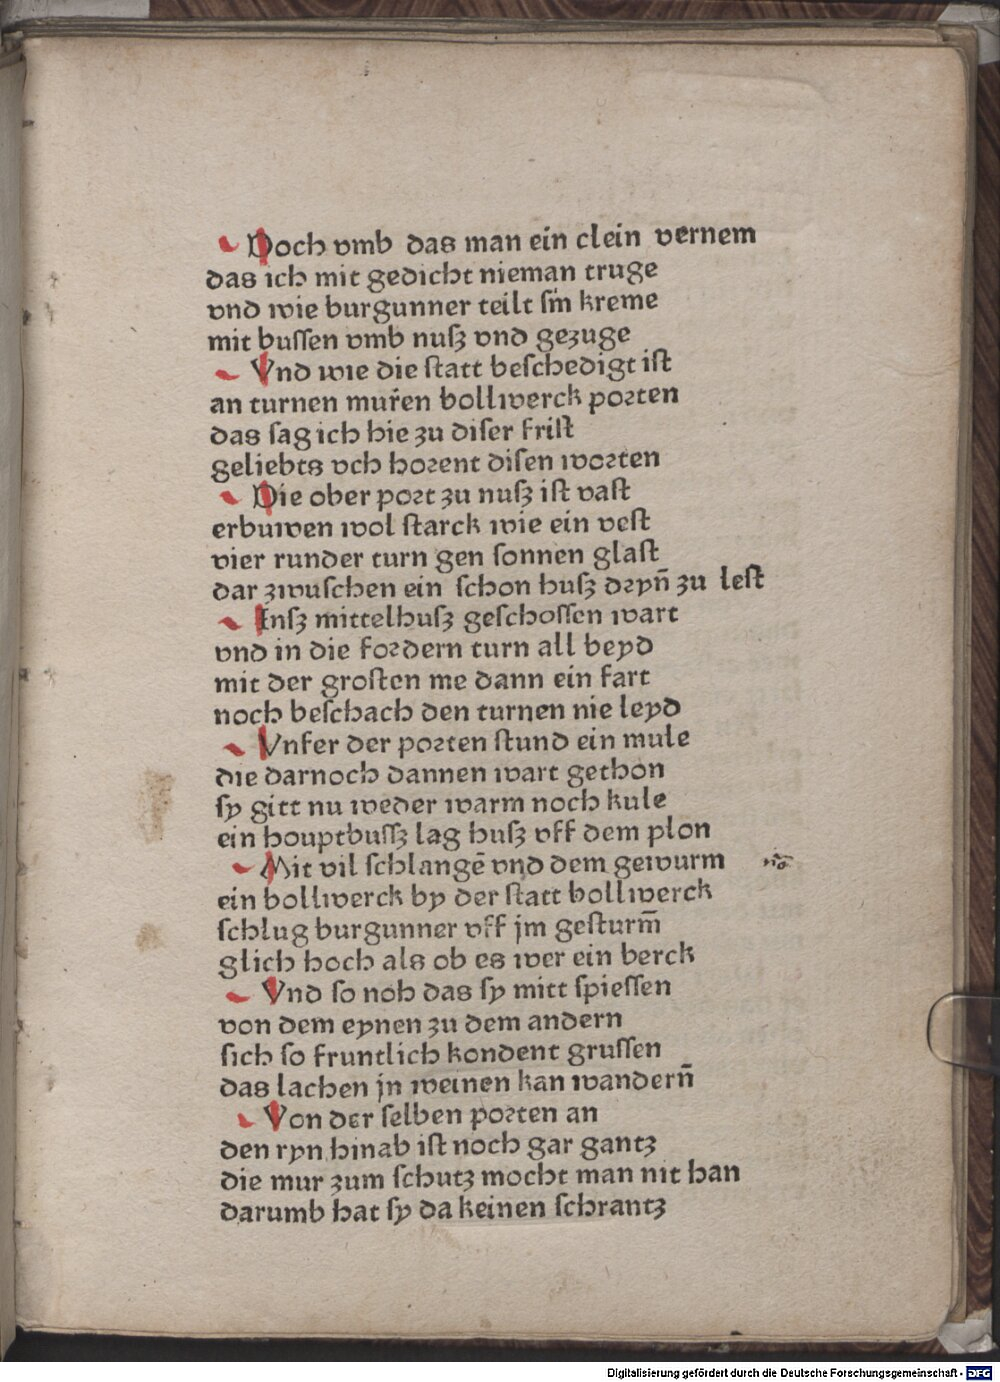 Doch vmb das man ein clein vernem
das ich mit gedicht nieman truge
vnd wie burgunner teilt sin̄ kreme
mit bussen vmb nusz vnd gezuge
Vnd wie die statt beschedigt ist
an turnen mur̄en bollwerck porten
das sag ich hie zu diser frist
geliebts vch horent disen worten
Die ober port zu nusz ist vast
erbuwen wol starck wie ein vest
vier runder turn gen sonnen glast
dar zwuschen ein schon husz dryn̄ zu lest
Insz mittelhusz geschossen wart
vnd in die fordern turn all beyd
mit der grosten me dann ein fart
noch beschach den turnen nie leyd
Vnfer der porten stund ein mule
die darnoch dannen wart gethon
sy gitt nu weder warm noch kule
ein houptbussz lag husz vff dem plon
Mit vil schlangē vnd dem gewurm
ein bollwerck by der statt bollwerck
schlug burgunner vff jm gesturm̄
glich hoch als ob es wer ein berck
Vnd so noh das sy mitt spiessen
von dem eynen zu dem andern
sich so fruntlich kondent grussen
das lachen jn weinen kan wandern̄
Von der selben porten an
den ryn hinab ist noch gar gantz
die mur zum schutz mocht man nit han
darumb hat sy da keinen schrantz
Digitalisierung gefördert durch die Deutsche Forschungsgemeinschaft - DFG